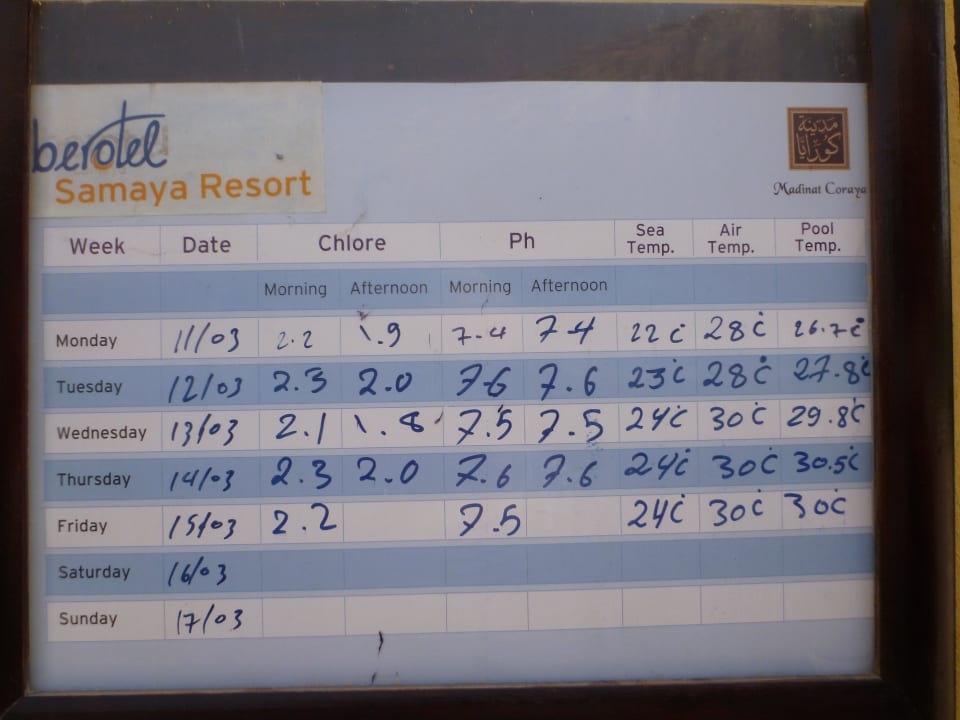 berotel
Samaya Resort
مدينة
كورايا
Madinat Coraya
Week Date Chlore Ph Sea Temp. Air Temp. Pool Temp.
Morning Afternoon Morning Afternoon
Monday 11/03 2.2 1.9 7-4 7-4 22 c 28 c 26.7 c
Tuesday 12/03 2.3 2.0 7-6 7.6 23 c 28 c 27.8 c
Wednesday 13/03 2.1 1.8 7.5 7.5 24 c 30 c 29.8 c
Thursday 14/03 2.3 2.0 7.6 7.6 24 c 30 c 30.5 c
Friday 15/03 2.2 7.5 24 c 30 c 30 c
Saturday 16/03
Sunday 17/03